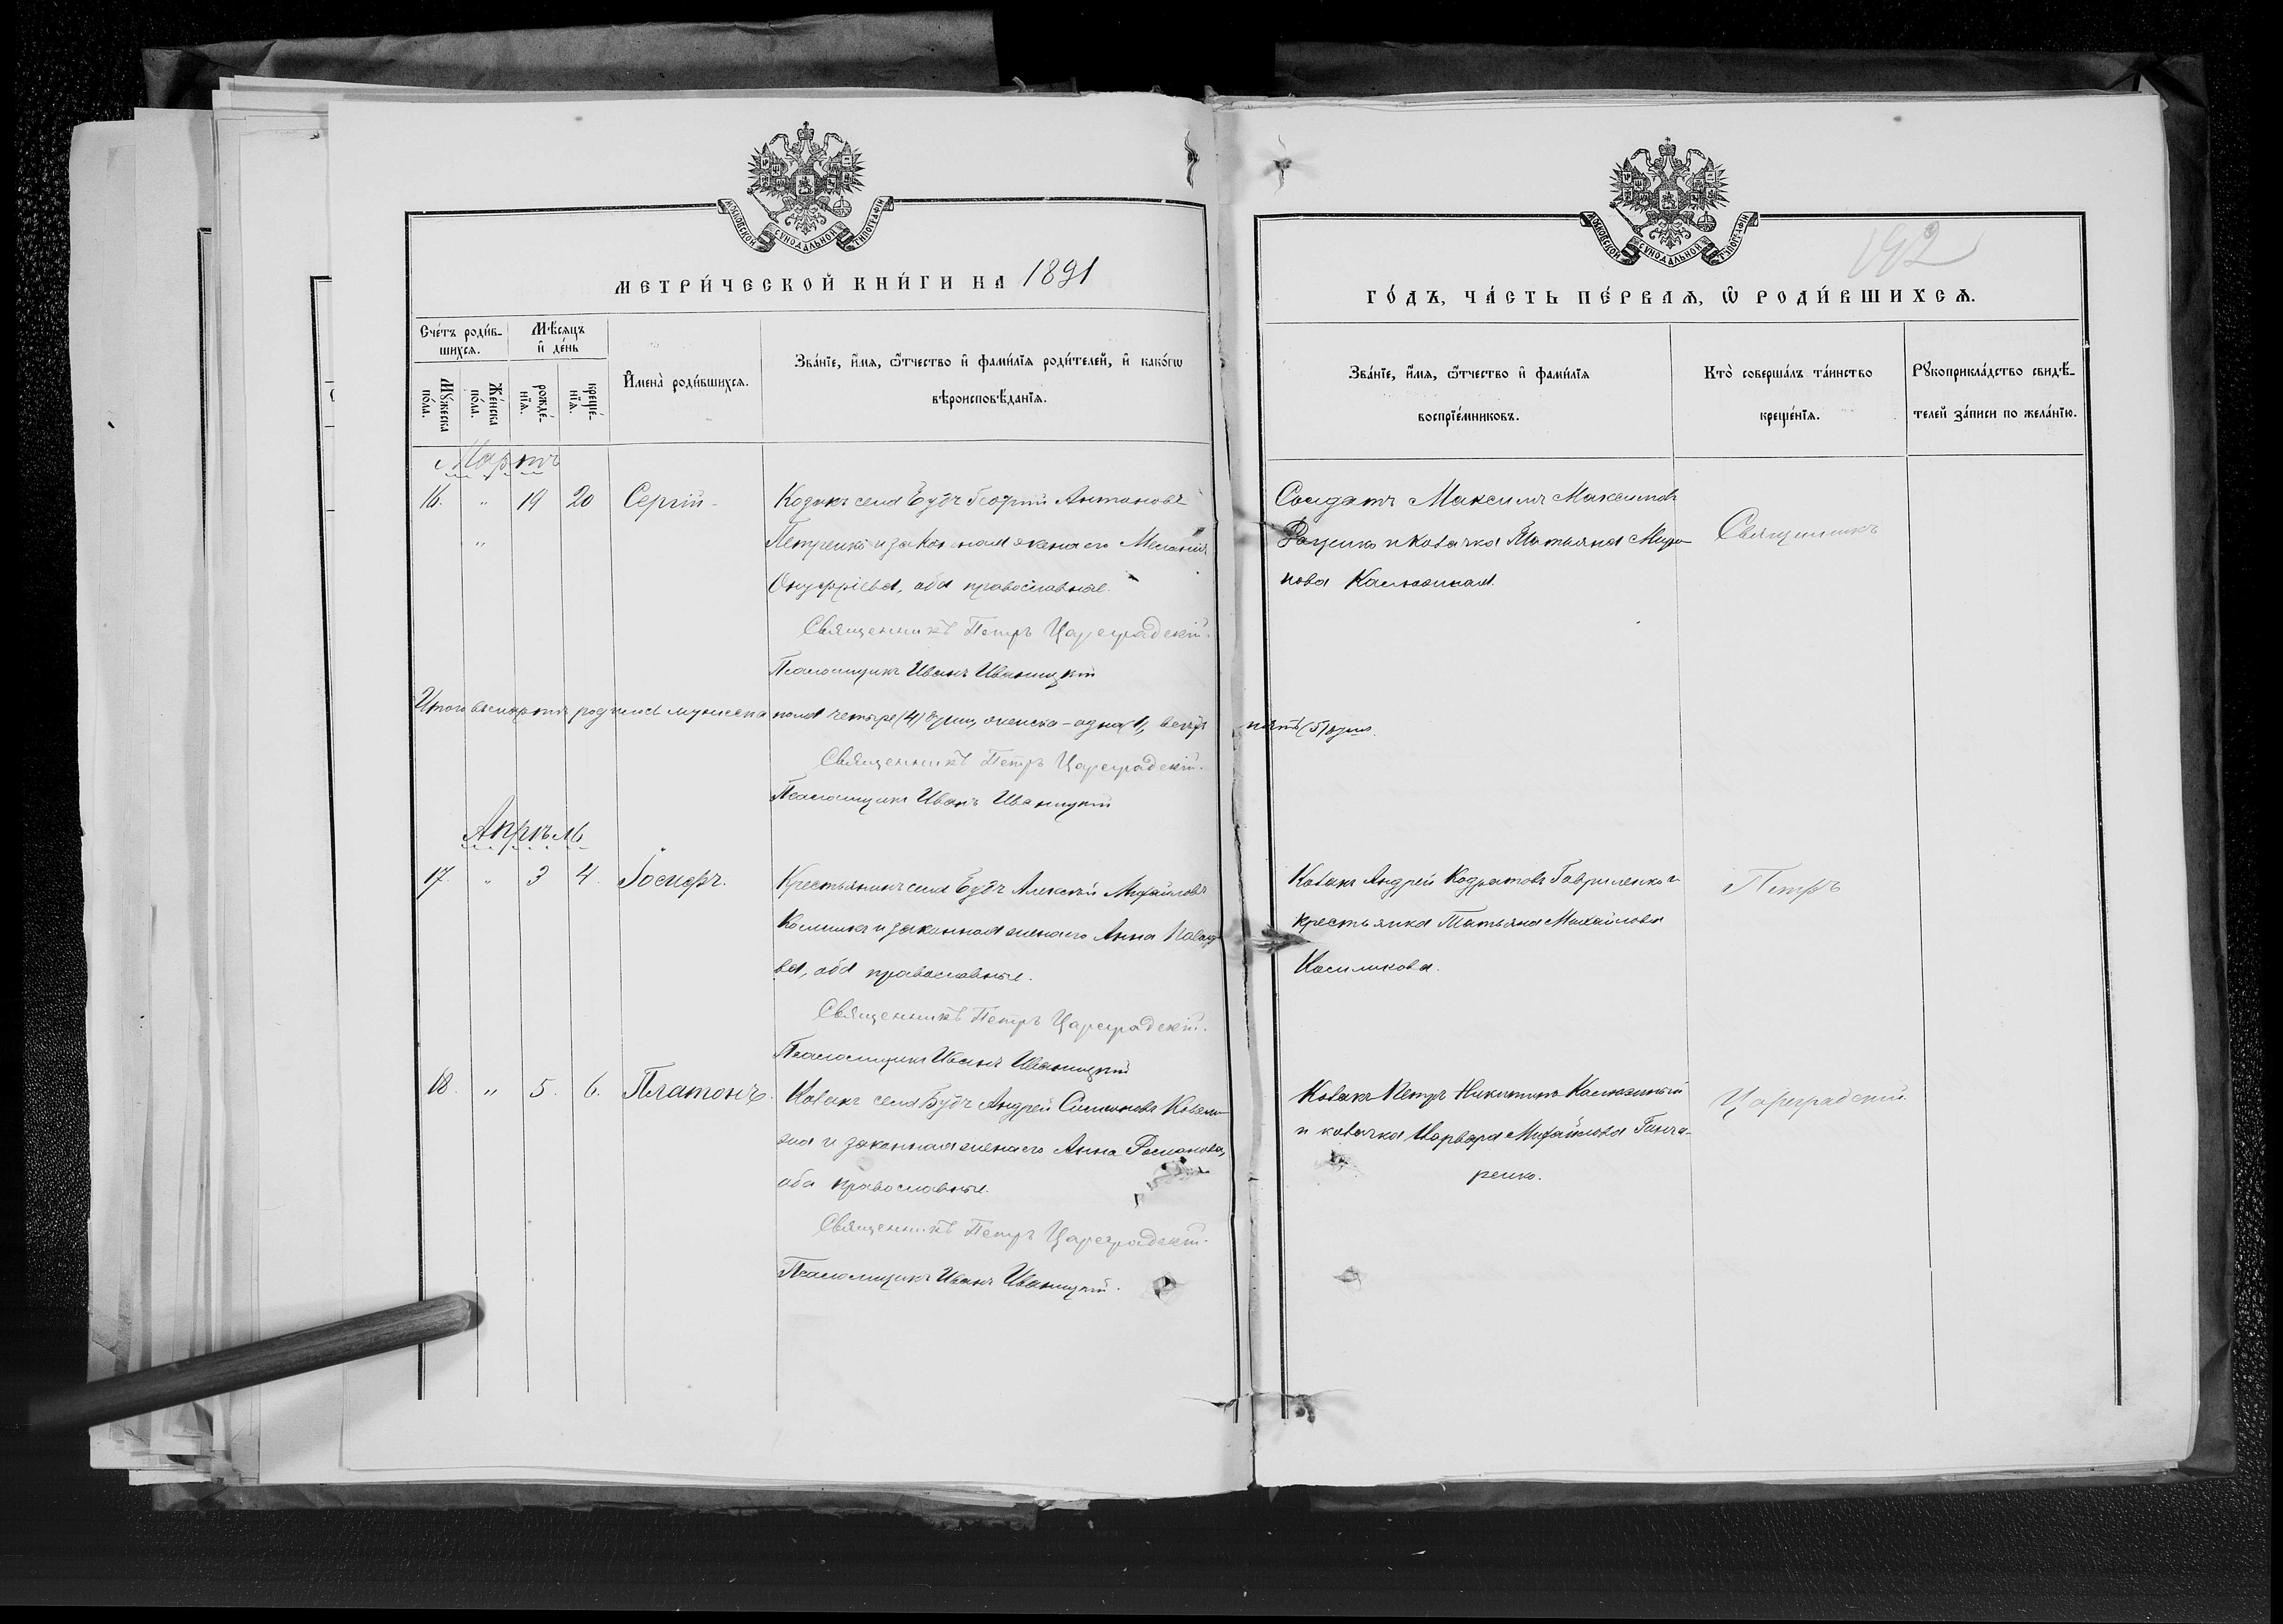 МОСКОВСКОЙ СѴНОДАЛЬНОЙ ТИПОГРАФІИ
МЕТРИ́ЧЕСКОЙ КНИ́ГИ НА 1891
Сче́тъ роди́в-
шихсѧ.
Мѣ́сѧцъ
и҆ де́нь
Мꙋ́жеска
по́ла.
Же́нска
по́ла.
рожде́-
нїѧ.
креще́-
нїѧ.
И҆мена̀ роди́вшихсѧ.
Зва́нїе, и҆́мѧ, ѻ҆́тчество и҆ фами́лїѧ роди́телей, и҆ како́гѡ
вѣроисповѣ́данїѧ.
Мартъ
16. " 19 20 Сергій
Козакъ села Будъ Георгій Антоновъ
Петренко и законная жена его Меланія
Онуфріева, оба православные.
Священникъ Петръ Цареградскій.
Псаломщикъ Иванъ Иваницкій
Итого въ мартѣ родилось мужеска пола четыре (4) душ, женска – одна (1), всего
Священникъ Петръ Цареградскій.
Псаломщикъ Иванъ Иваницкій
Апрѣль
17. " 3 4. Іосифъ.
Крестьянинъ села Будъ Алексѣй Михайловъ
и законная жена его Анна
ва, оба православные.
Священникъ Петръ Цареградскій.
Псаломщикъ Иванъ Иваницкій
18. " 5. 6. Платонъ.
Козакъ села Будъ Андрей Симоновъ
и законная жена его Анна Романова,
оба православные.
Священникъ Петръ Цареградскій.
Псаломщикъ Иванъ Иваницкій.
МОСКОВСКОЙ СѴНОДАЛЬНОЙ ТИПОГРАФІИ
192
ГО́ДЪ, ЧА́СТЬ ПЕ́РВАѦ, Ѽ РОДИ́ВШИХСѦ.
Зва́нїе, и҆́мѧ, ѻ҆́тчество и҆ фами́лїѧ
воспрїе́мниковъ.
Кто̀ соверша́лъ та́инство
креще́нїѧ.
Рꙋкоприкла́дство свидѣ́-
телей за́писи по жела́нїю.
Солдатъ Максимъ Максимовъ
и козачка Татьяна Миро-
нова
Священникъ
пять (5) душъ.
Козакъ Андрей Кодратовъ Гавриленко и
крестьянка Татьяна Михайлова
Петръ
Козакъ Петръ Никитинъ
и козачка Варвара Михайлова Гонча-
ренко.
Цареградскій.